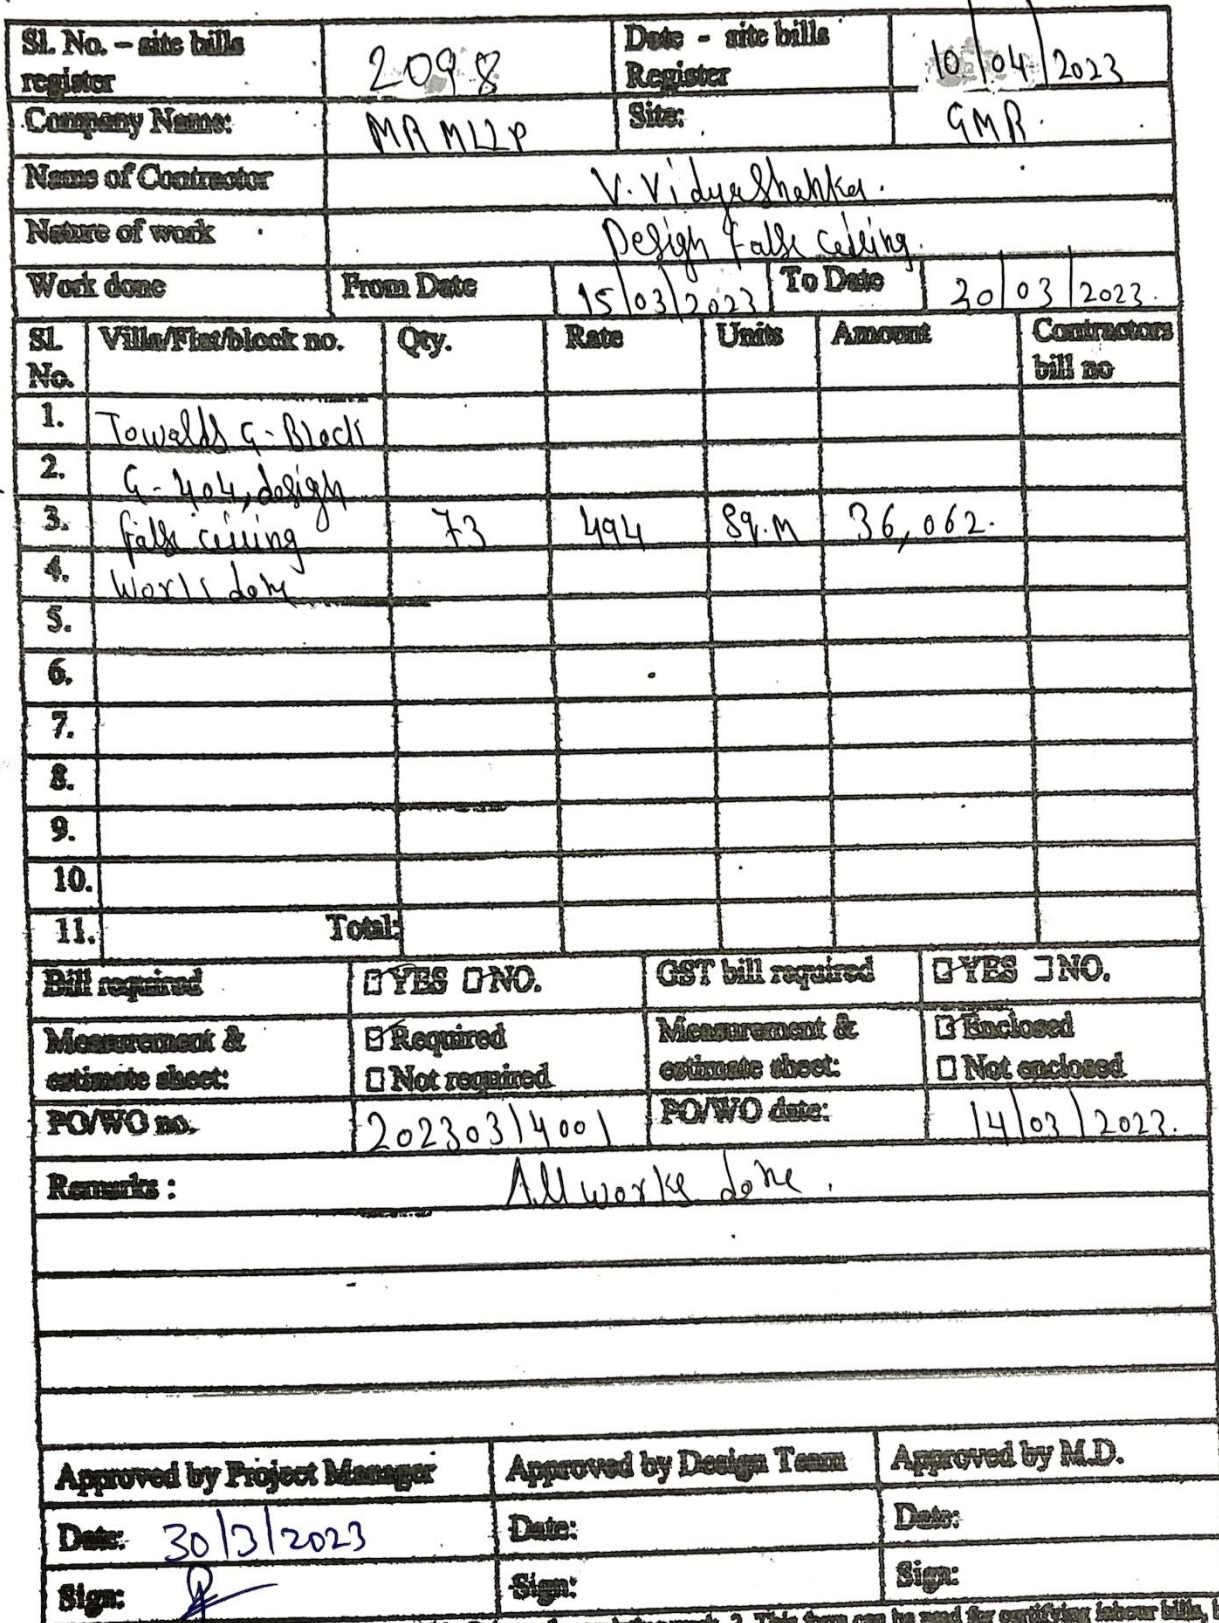 Sl. No. – site bills register 2098 Date - site bills Register 10/04/2023
Company Name: MRMLLP Site: GMR.
Name of Contractor V. Vidyashahka.
Nature of work Design False ceiling.
Work done From Date 15/03/2023 To Date 20/03/2023.
Sl. No. Villa/Flat/block no. Qty. Rate Units Amount Contractors bill no
1. Towalds G-Block
2. G-404, design
3. false ceiling 73 494 Sq.M 36,062.
4. Work done
5.
6.
7.
8.
9.
10.
11. Total:
Bill required YES NO. GST bill required YES NO.
Measurement & estimate sheet: Required Not required Measurement & estimate sheet: Enclosed Not enclosed
PO/WO no. 202303/4001 PO/WO date: 14/03/2023.
Remarks : All works done.
Approved by Project Manager Approved by Design Team Approved by M.D.
Date: 30/3/2023 Date: Date:
Sign: Sign: Sign:
2. This form can be used for certifying labour bills,